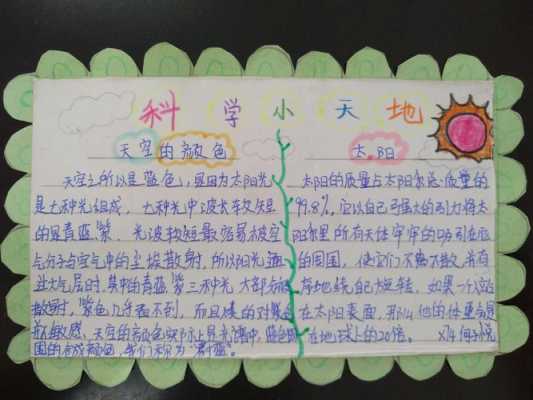 科学小天地
天空的颜色
天空之所以是蓝色,是因为太阳光
是七种光组成,七种光中波长较短
的是青蓝紫,光波较短最容易被空
气分子与空气中的尘埃散射,所以阳光通
过大气层时,其中的青、蓝、紫三种光大部分被
散射,紫色几乎看不到,而且
敏感,天空的颜色实际上是光谱中,蓝色
的合成颜色,我们称为"蔚蓝"。
太阳
太阳的质量占太阳系总质量的
99.8%,它以自己强大的引力将太
阳系里所有天体牢牢的吸引在
的周围,使它们不离不散,井有
地绕自己旋转,如果一个
在太阳表面,那么他的体重是
在地球上的20倍。